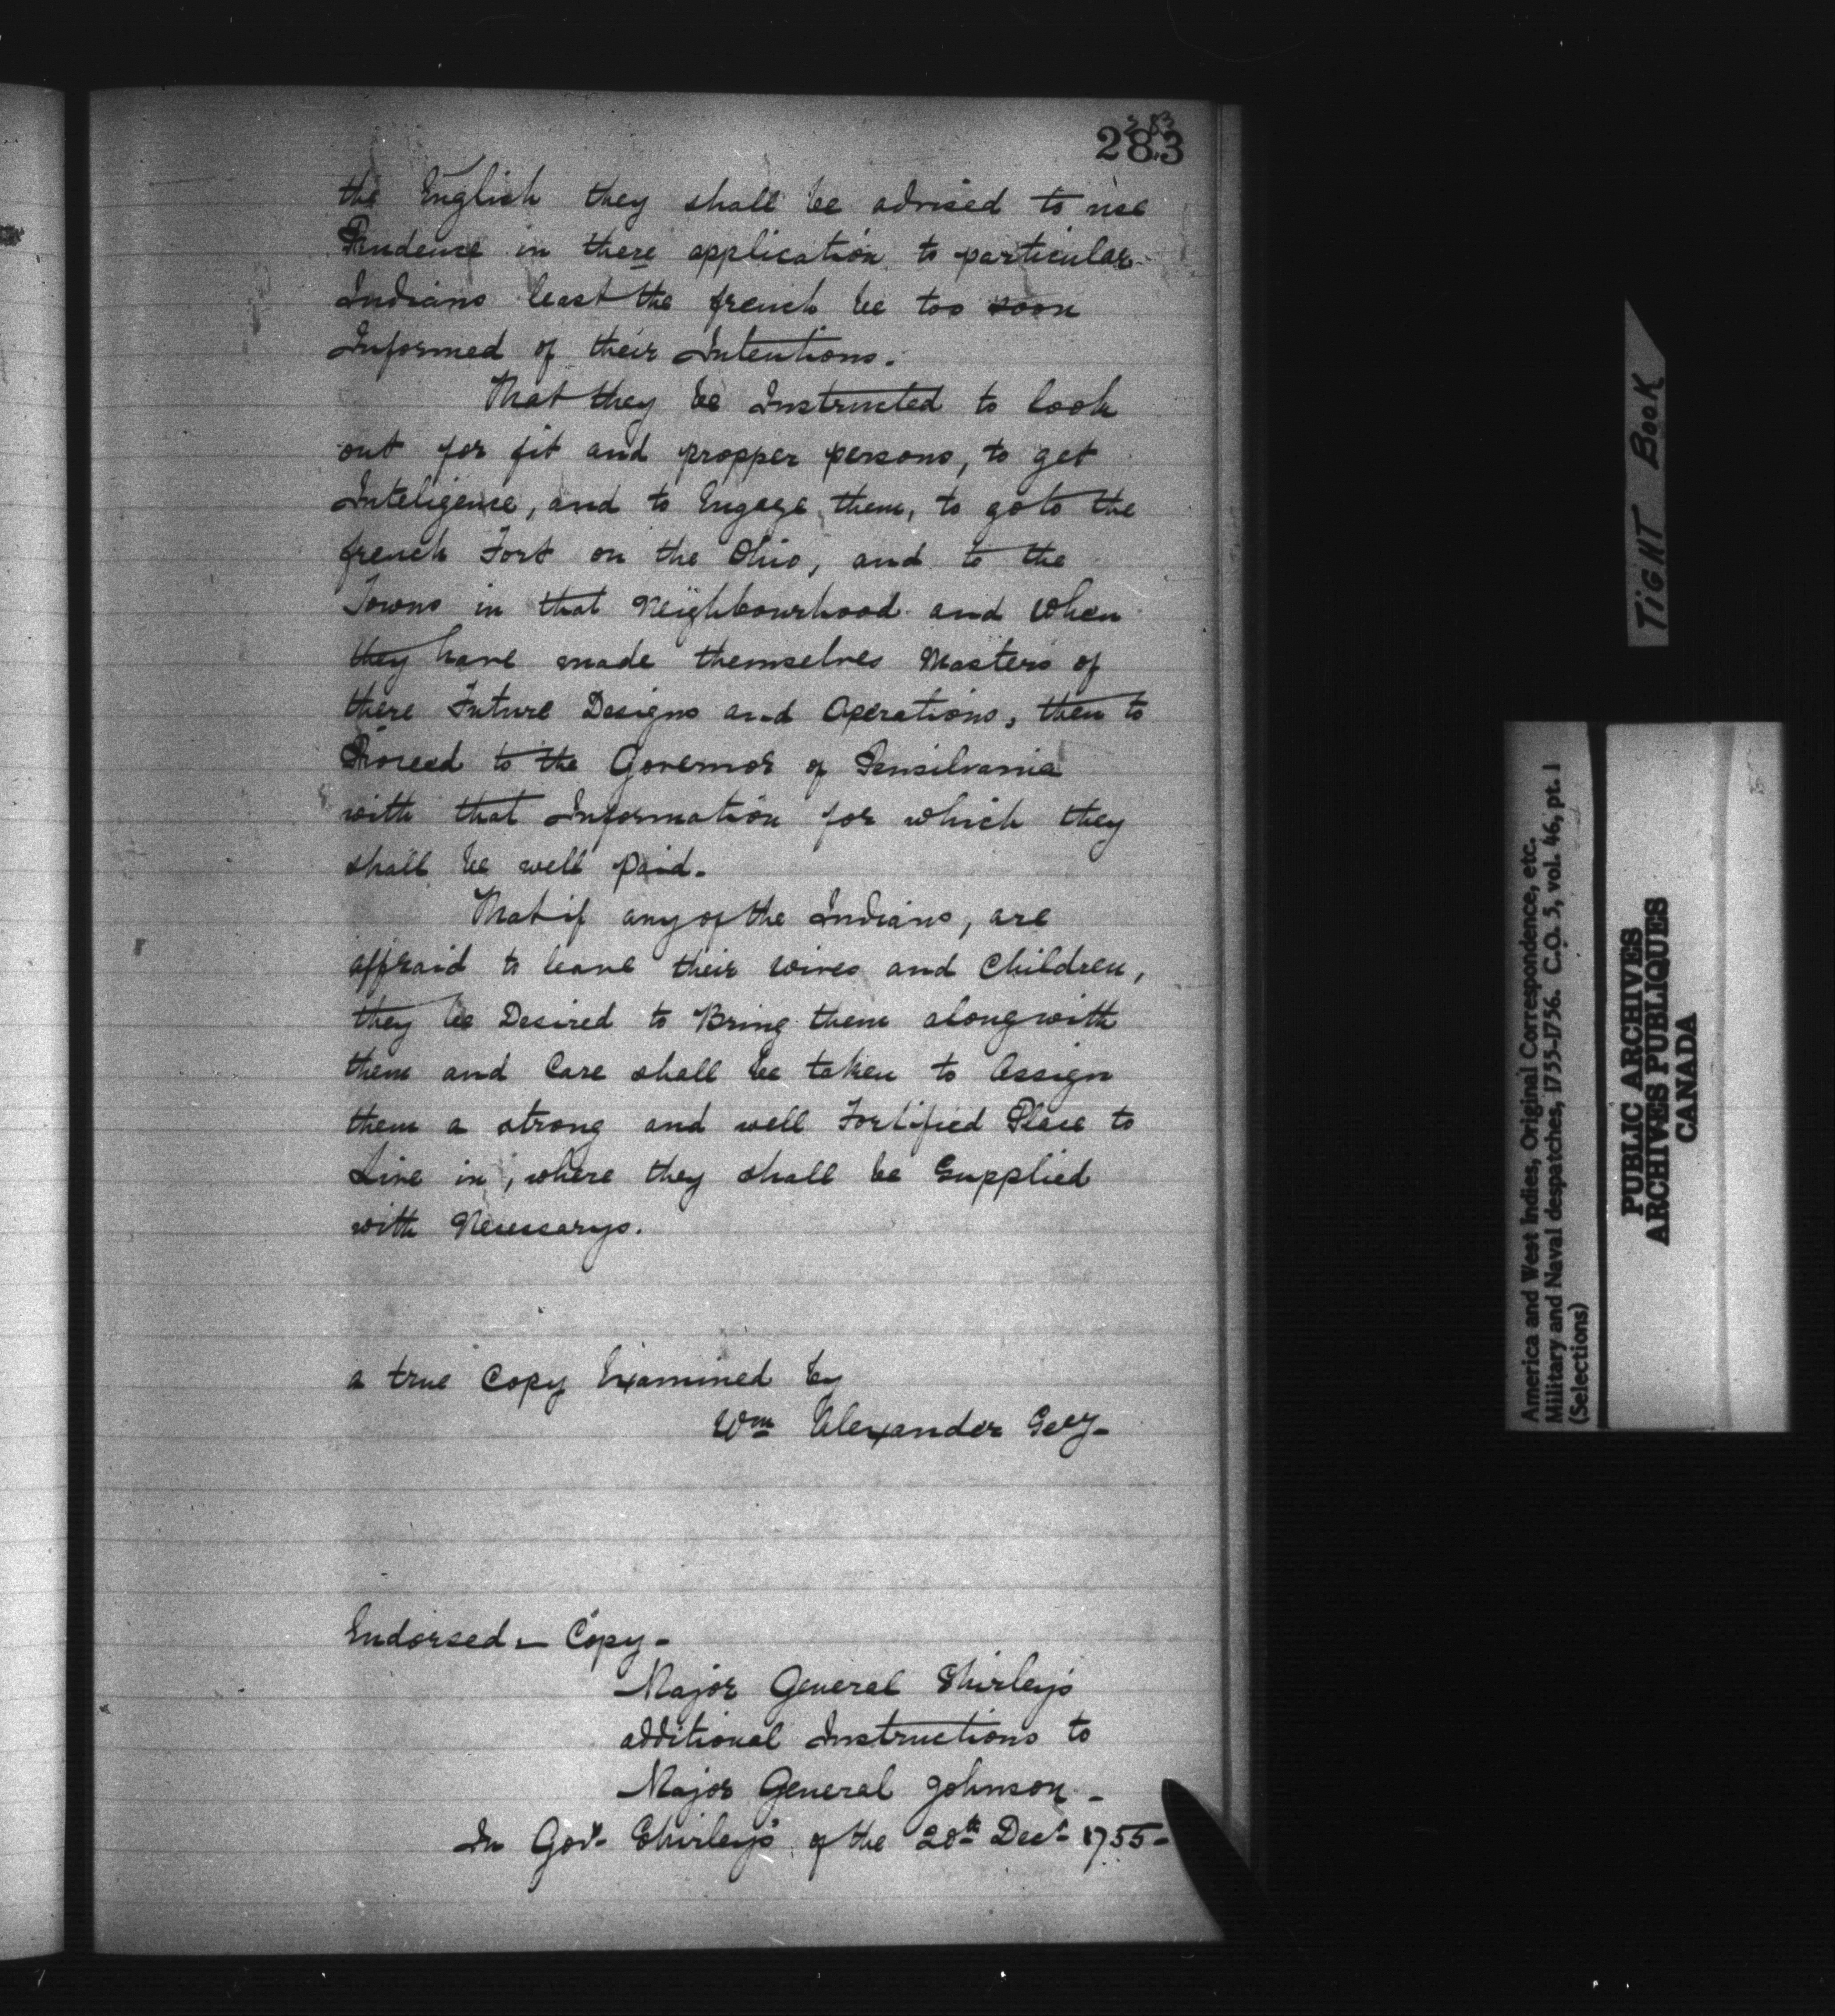 283
283
the English they shall be advised to use
Prudence in there application to particular
Indians least the french be too soon
Informed of their Intentions.
That they be Instructed to look
out for fit and propper persons, to get
Inteligence, and to Engage them, to go to the
french Fort on the Ohio, and to the
Towns in that Neighbourhood and When
they have made themselves Masters of
there Future Designs and Operations, then to
Proceed to the Governor of Pensilvania
with that Information for which they
shall be well paid.
That if any of the Indians, are
affraid to leave their wives and Children,
they be Desired to Bring them along with
them and Care shall be taken to Assign
them a strong and well Fortified Place to
Live in, where they shall be Supplied
with Necessarys.
a true Copy Examined by
Wm Alexander Secy-
Endorsed - Copy -
Major General Shirley's
additional Instructions to
Major General Johnson -
In Govr. Shirley's of the 20th Decr 1755 -
TIGHT BOOK
America and West Indies, Original Correspondence, etc.
Military and Naval despatches, 1755-1756. C.O. 5, vol. 46, pt. 1
(Selections)
PUBLIC ARCHIVES
ARCHIVES PUBLIQUES
CANADA